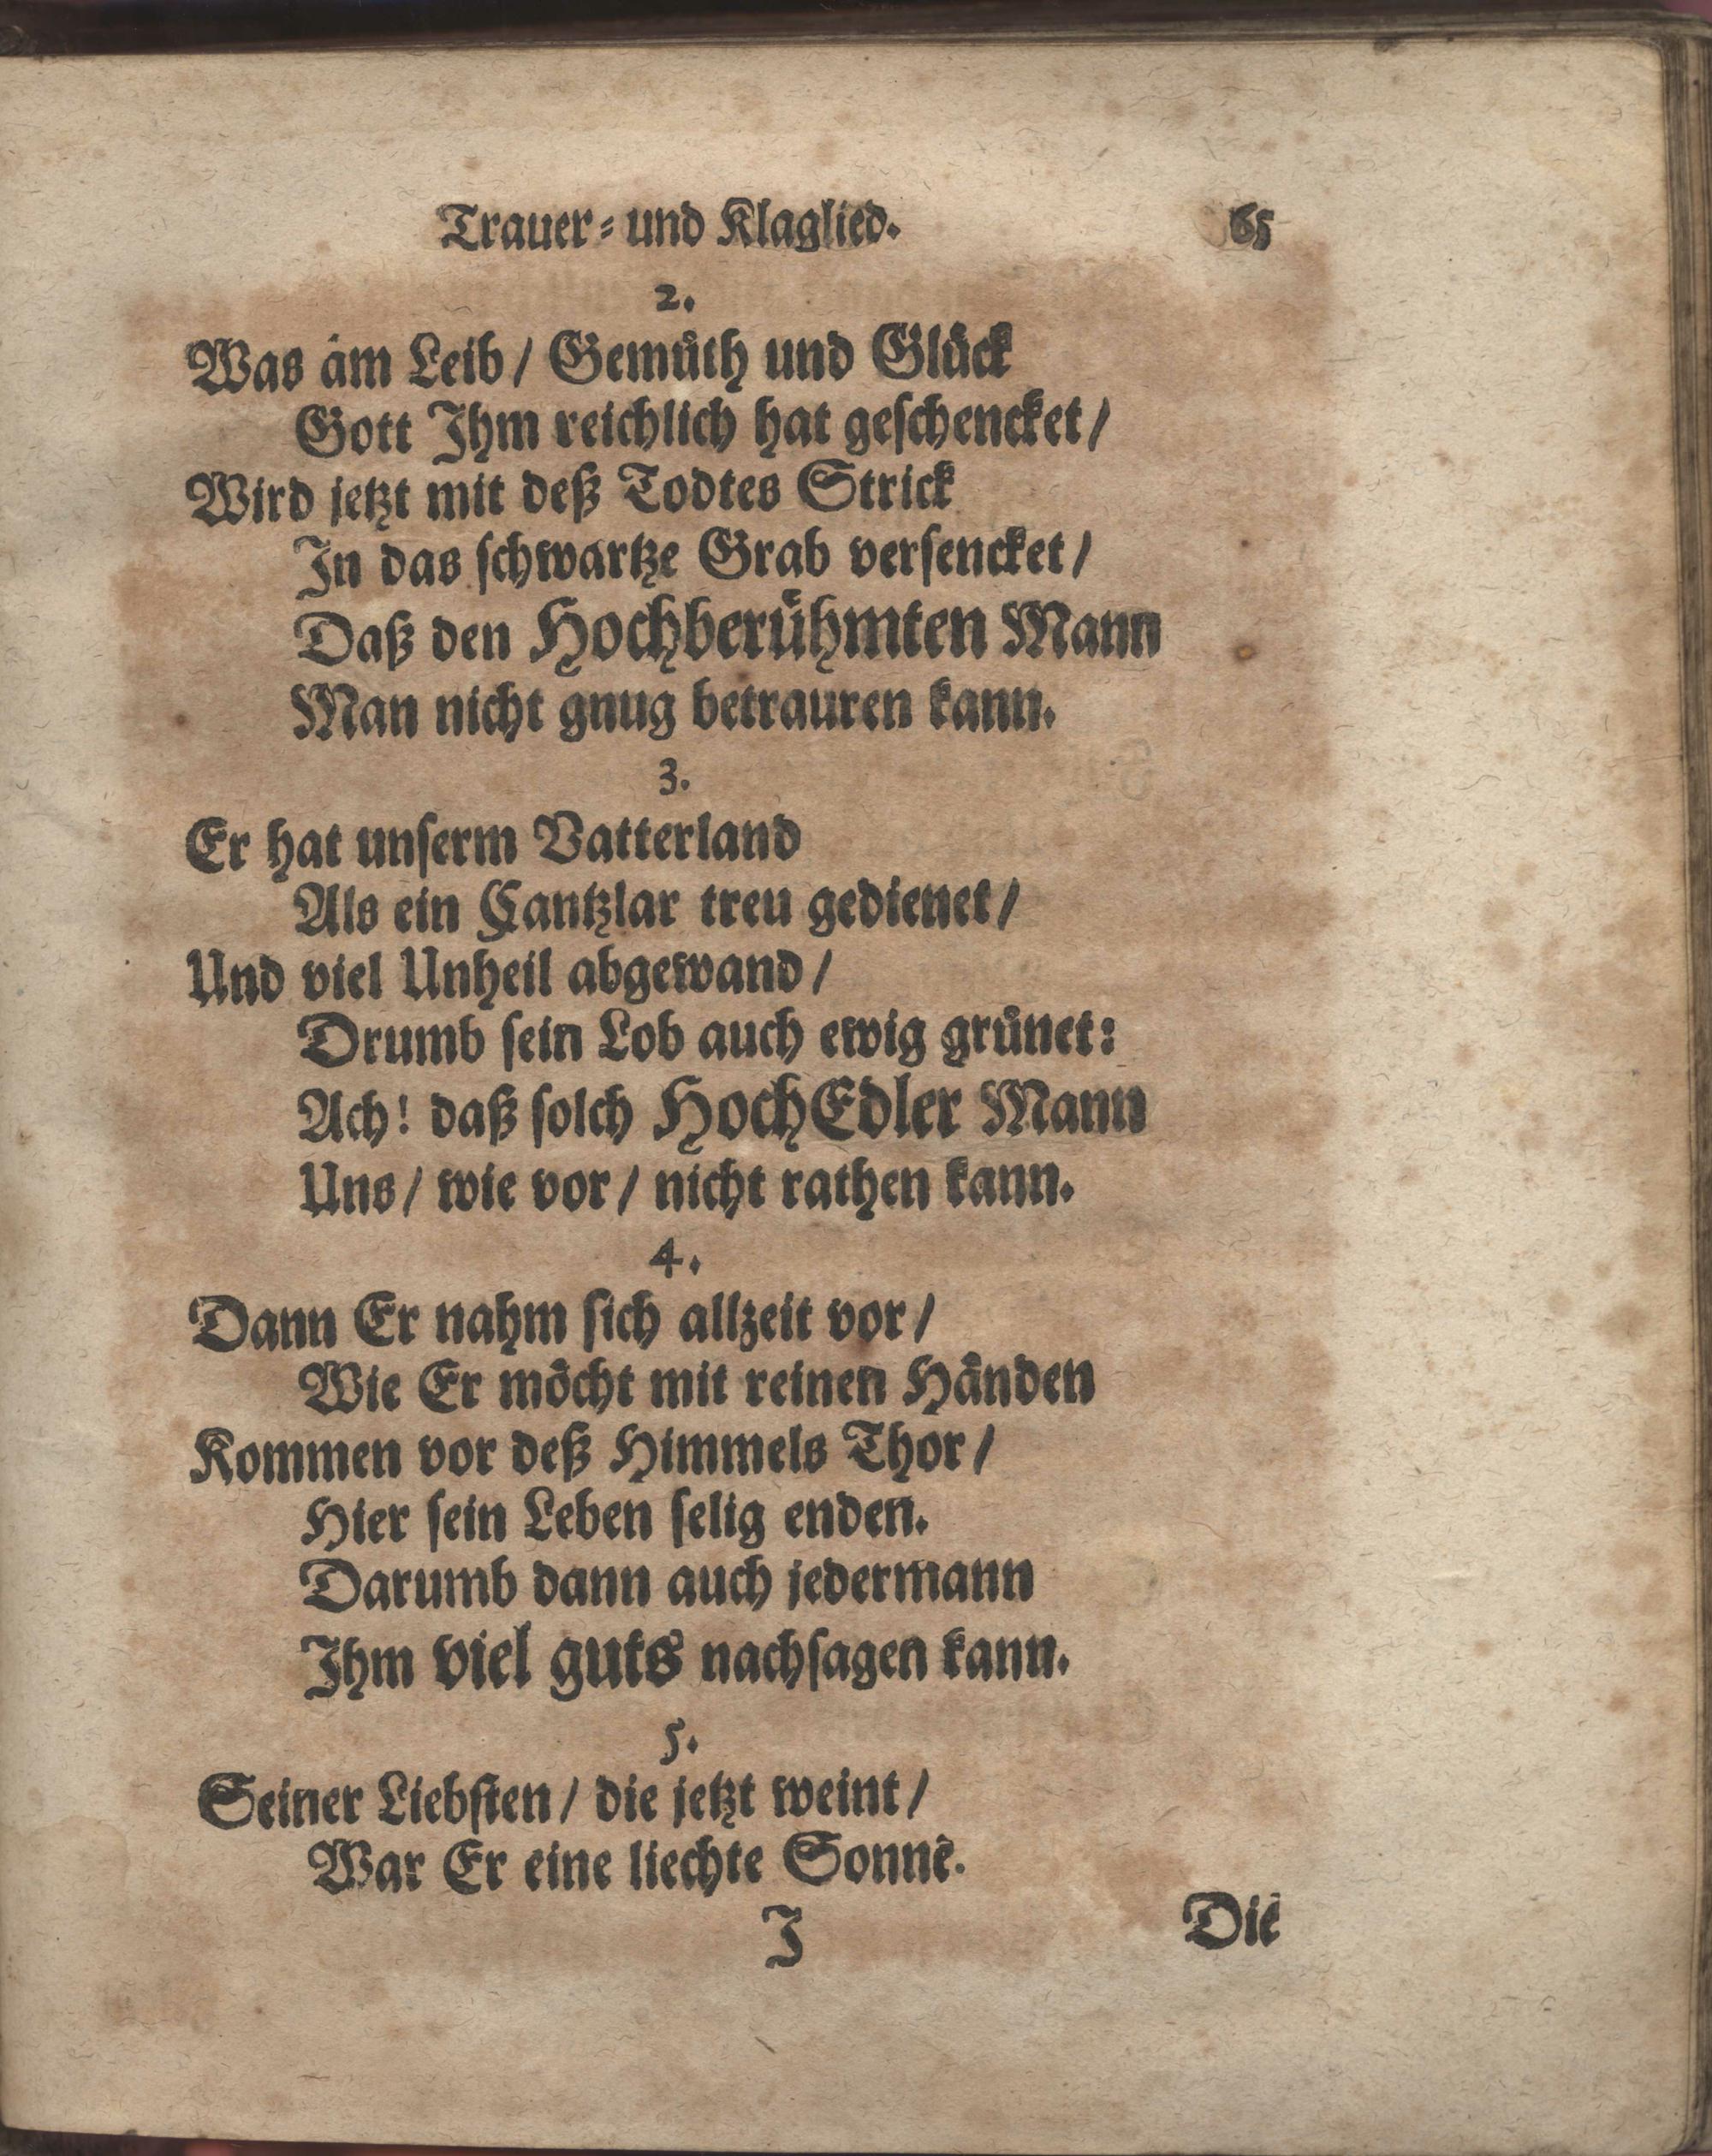 Trauer- und Klaglied. 65
2.
Was am Leib / Gemüth und Glück
Gott Ihm reichlich hat geschencket /
Wird jetzt mit deß Todtes Strick
In das schwartze Grab versencket /
Daß den Hochberühmten Mann
Man nicht gnug betrauren kann.
3.
Er hat unserm Vatterland
Als ein Cantzlar treu gedienet /
Und viel Unheil abgewand /
Drumb sein Lob auch ewig grünet:
Ach! daß solch HochEdler Mann
Uns / wie vor / nicht rathen kann.
4.
Dann Er nahm sich allzeit vor /
Wie Er möcht mit reinen Händen
Kommen vor deß Himmels Thor /
Hier sein Leben selig enden.
Darumb dann auch jedermann
Ihm viel guts nachsagen kann.
5.
Seiner Liebsten / die jetzt weint /
War Er eine liechte Sonne.
I Die